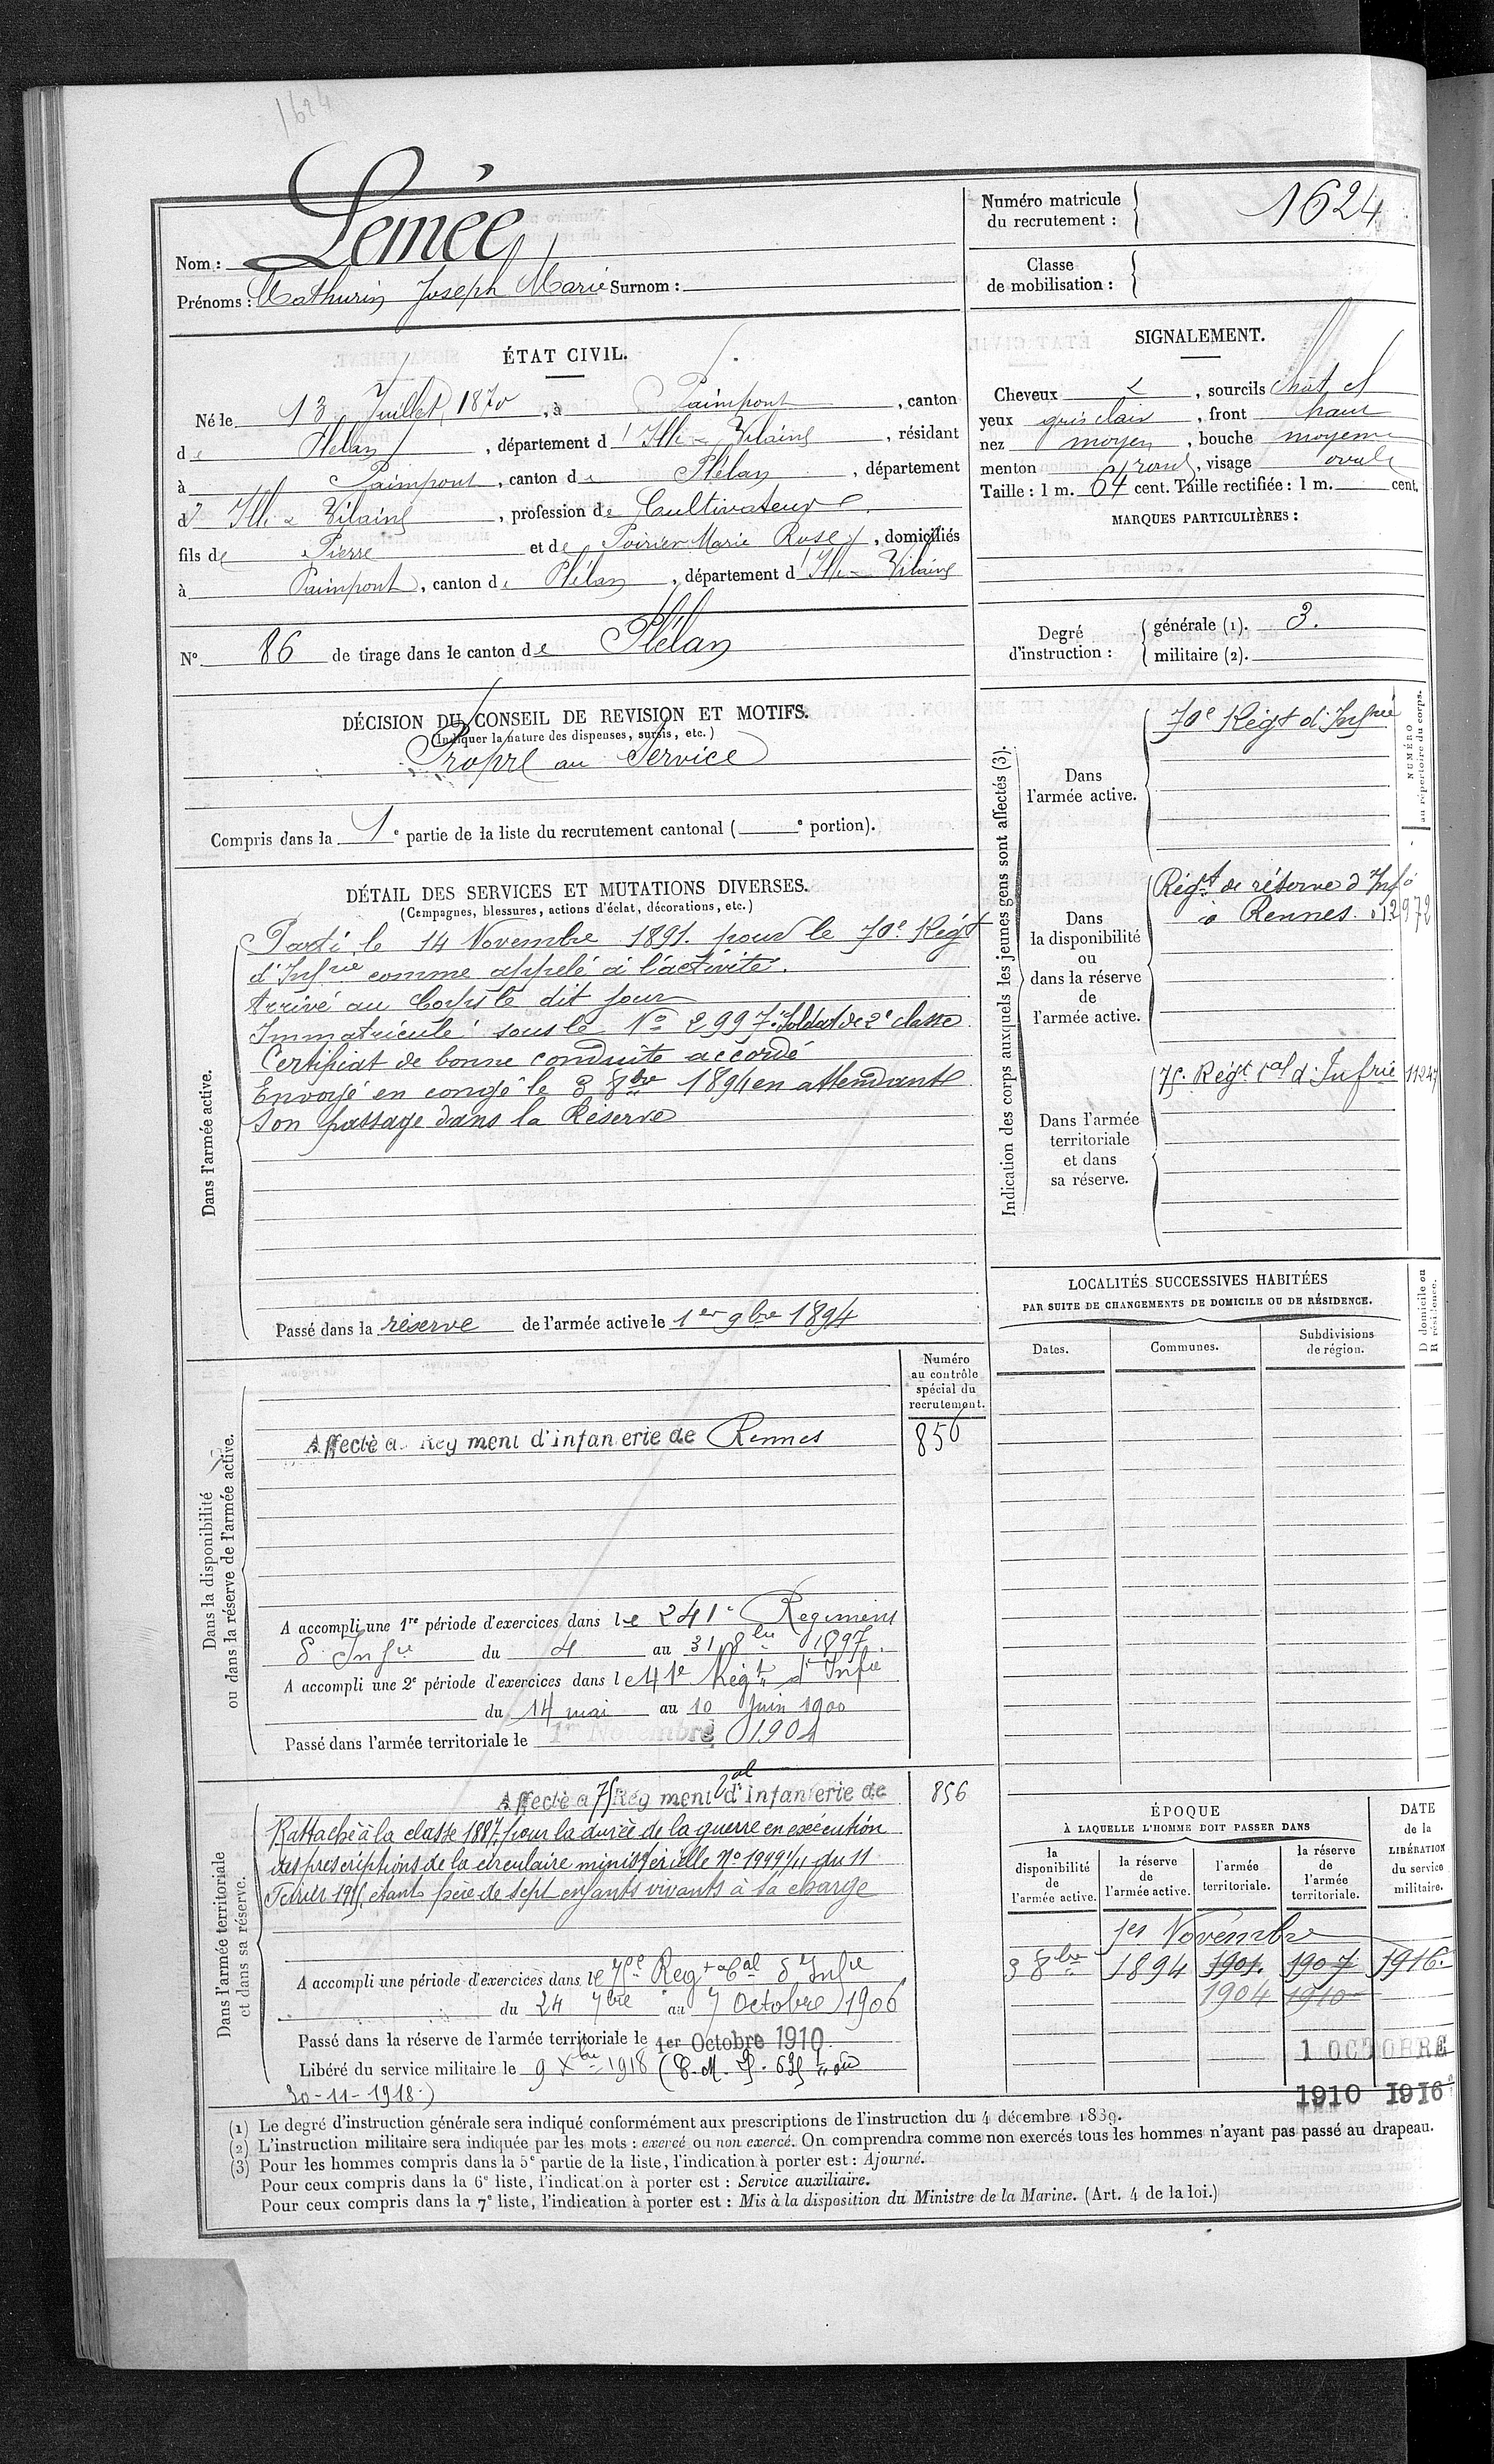 1624
Nom : Lemée
Prénoms : Mathurin Joseph Marie Surnom :
Numéro matricule du recrutement : 1624
Classe de mobilisation :
ÉTAT CIVIL.
Né le 13 Juillet 1870, à Paimpont, canton
de Plélan, département d'Ille-&-Vilaine, résidant
à Paimpont, canton de Plélan, département
d'Ille & Vilaine, profession de Cultivateur
fils de Pierre et de Poirier Marie Rose, domiciliés
à Paimpont, canton de Plélan, département d'Ille-Vilaine
N° 86 de tirage dans le canton de Plélan
SIGNALEMENT.
Cheveux &, sourcils chat. cl
yeux gris clair, front haut
nez moyen, bouche moyenne
menton rond, visage ovale
Taille : 1 m. 64 cent. Taille rectifiée : 1 m. cent.
MARQUES PARTICULIÈRES :
Degré d'instruction :
générale (1). 3.
militaire (2).
DÉCISION DU CONSEIL DE REVISION ET MOTIFS.
(Indiquer la nature des dispenses, sursis, etc.)
Propre au Service
Compris dans la 1e partie de la liste du recrutement cantonal ( e portion).
DÉTAIL DES SERVICES ET MUTATIONS DIVERSES.
(Campagnes, blessures, actions d'éclat, décorations, etc.)
Dans l'armée active.
Parti le 14 Novembre 1891. pour le 70e Régt
d'Infrie comme appelé à l'activité.
Arrivé au Corps le dit jour
Immatriculé sous le No 2997. Soldat de 2e classe
Certificat de bonne conduite accordé
Envoyé en congé le 3 8bre 1894 en attendant
son passage dans la Réserve
Passé dans la réserve de l'armée active le 1er 9bre 1894
Indication des corps auxquels les jeunes gens sont affectés (3).
NUMÉRO au répertoire du corps.
Dans l'armée active.
70e Régt d'Infrie
Dans la disponibilité ou dans la réserve de l'armée active.
Régt de réserve d'Inf
à Rennes. 12972
Dans l'armée territoriale et dans sa réserve.
75e Régt tal d'Infrie 11247
LOCALITÉS SUCCESSIVES HABITÉES
PAR SUITE DE CHANGEMENTS DE DOMICILE OU DE RÉSIDENCE.
Dates.
Communes.
Subdivisions de région.
D domicile ou R résidence.
Dans la disponibilité ou dans la réserve de l'armée active.
Numéro au contrôle spécial du recrutement.
Affecté a Rég ment d'infan erie de Rennes
856
A accompli une 1re période d'exercices dans le 241e Régiment
d'Infie du 4 au 31 8bre 1897.
A accompli une 2e période d'exercices dans le 41e Régt d'Infie
du 14 mai au 10 Juin 1900
Passé dans l'armée territoriale le 1er Novembre 1904
Dans l'armée territoriale et dans sa réserve.
Affecté a 75 Rég ment tal d'infanterie de
856
Rattaché à la classe 1887, pour la durée de la guerre en exécution
des prescriptions de la circulaire ministérielle No 19491/11 du 11
Février 1915, étant père de sept enfants vivants à sa charge
A accompli une période d'exercices dans le 75e Regt tal d'Infie
du 24 7bre au 7 Octobre 1906
Passé dans la réserve de l'armée territoriale le 1er Octobre 1910
Libéré du service militaire le 9 Xbre 1918 (C. M. du
30-11-1918.)
ÉPOQUE
À LAQUELLE L'HOMME DOIT PASSER DANS
la disponibilité de l'armée active.
la réserve de l'armée active.
l'armée territoriale.
la réserve de l'armée territoriale.
DATE de la LIBÉRATION du service militaire.
1er Novembre
3 8bre 1894 1901. 1907 1916.
1904 1910
1 OCTOBRE
1910 1916
(1) Le degré d'instruction générale sera indiqué conformément aux prescriptions de l'instruction du 4 décembre 1889.
(2) L'instruction militaire sera indiquée par les mots : exercé ou non exercé. On comprendra comme non exercés tous les hommes n'ayant pas passé au drapeau.
(3) Pour les hommes compris dans la 5e partie de la liste, l'indication à porter est : Ajourné.
Pour ceux compris dans la 6e liste, l'indication à porter est : Service auxiliaire.
Pour ceux compris dans la 7e liste, l'indication à porter est : Mis à la disposition du Ministre de la Marine. (Art. 4 de la loi.)